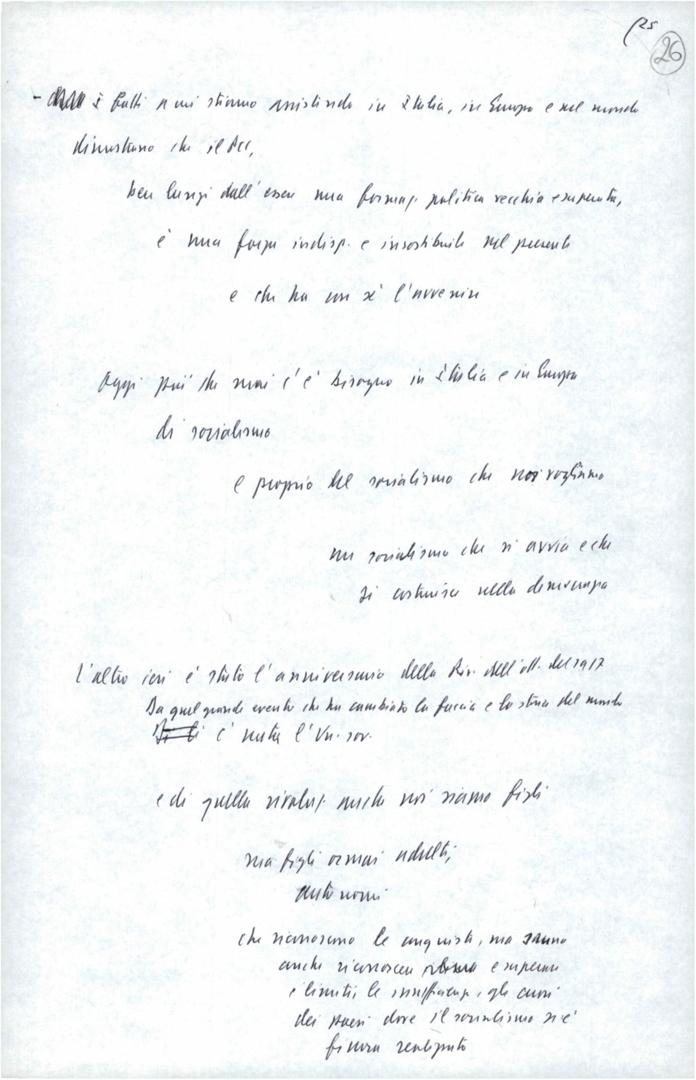 25
26
- i fatti a cui stiamo assistendo in Italia, in Europa e nel mondo
dimostrano che il PCI,
ben lungi dall'essere una formaz. politica vecchia e superata,
è una forza indisp. e insostituibile nel presente
e che ha con sé l'avvenire
Oggi più che mai c'è bisogno in Italia e in Europa
di socialismo
e proprio del socialismo che noi vogliamo
un socialismo che si avvia e che
si costruisce nella democrazia
L'altro ieri è stato l'anniversario della Riv. dell'ott. del 1917
Da quel grande evento che ha cambiato la faccia e la storia del mondo
è nata l'Un. sov.
e di quella rivoluz. anche noi siamo figli
ma figli ormai adulti,
autonomi
che riconoscono le conquiste, ma sanno
anche riconoscere e superare
i limiti, le insufficienze, gli errori
dei paesi dove il socialismo si è
finora realizzato